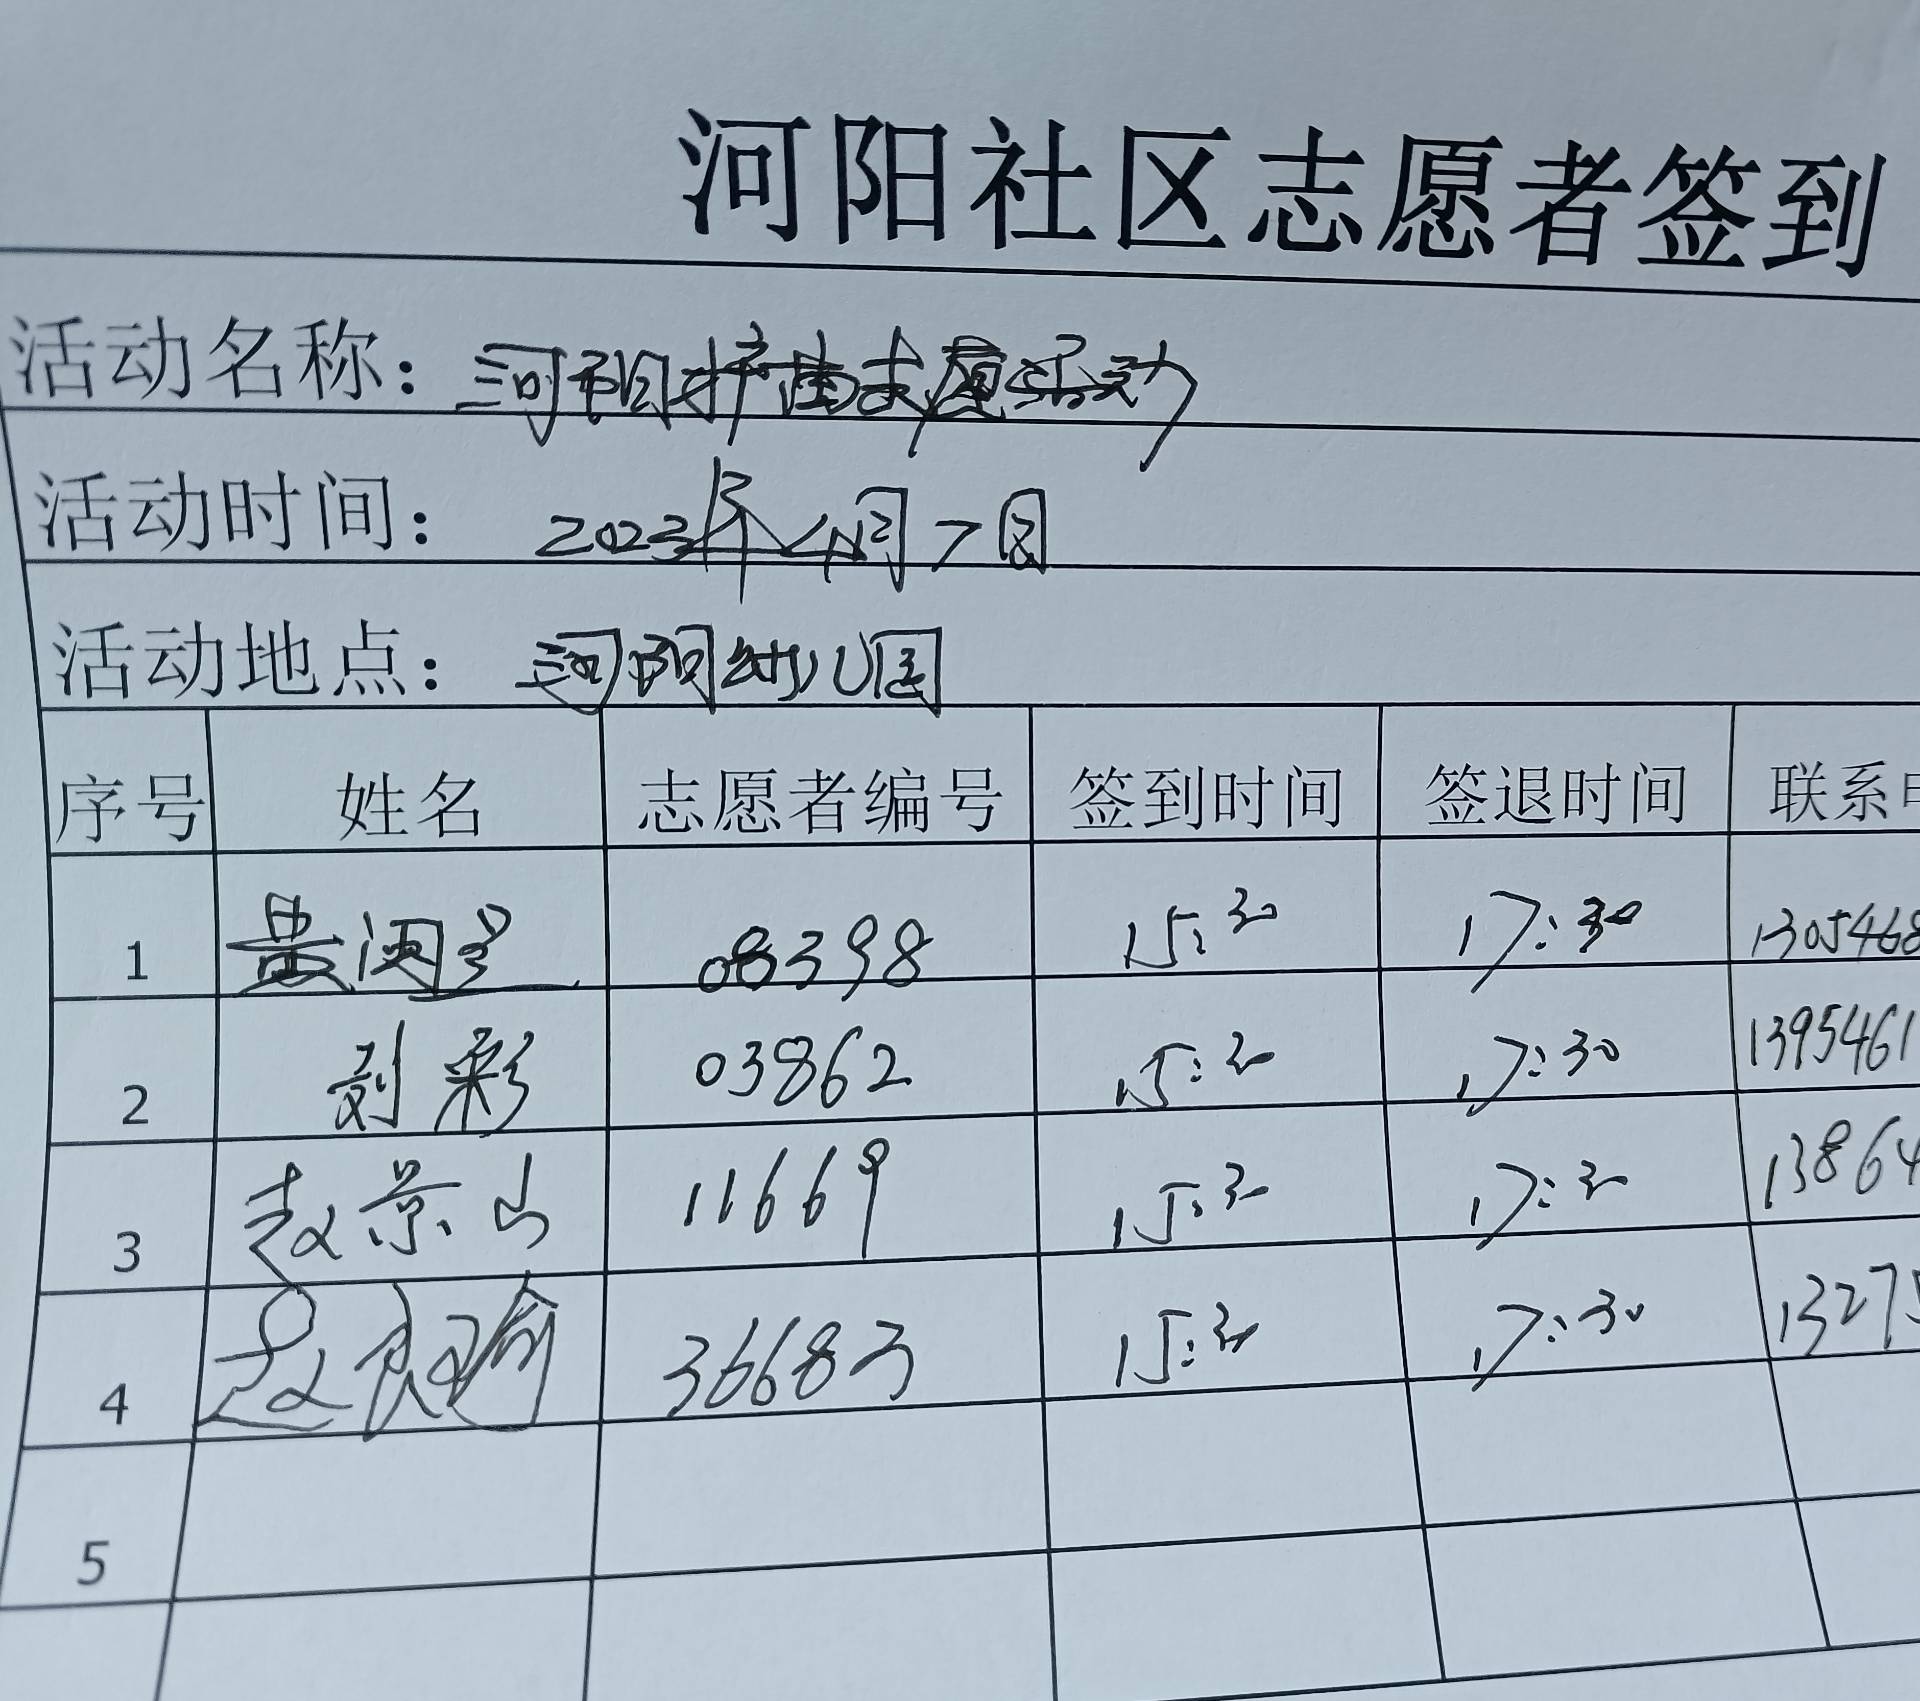 河阳社区志愿者签到
活动名称：河阳护苗志愿活动
活动时间：2023年4月7日
活动地点：河阳幼儿园
序号 姓名 志愿者编号 签到时间 签退时间 联系
1 08398 15:30 17:30 1305468
2 刘彩 03862 15:30 17:30 1395461
3 赵景山 11669 15:30 17:30 13864
4 36683 15:30 17:30 1327
5